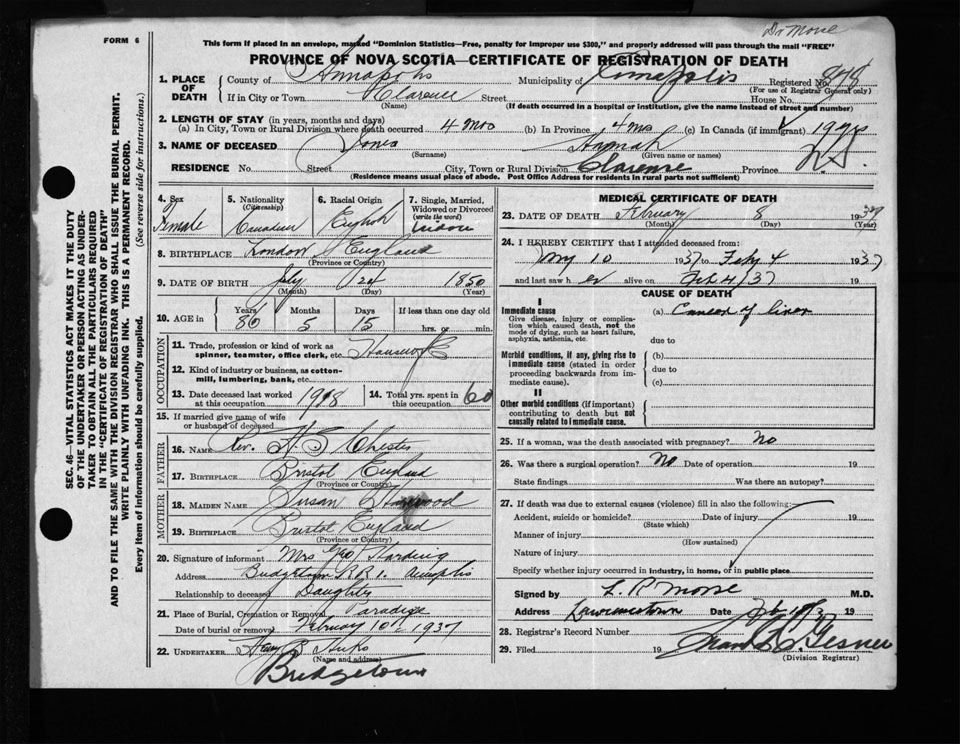 Dr Morse
FORM 6
This form if placed in an envelope, marked "Dominion Statistics—Free, penalty for improper use $300," and properly addressed will pass through the mail "FREE"
PROVINCE OF NOVA SCOTIA—CERTIFICATE OF REGISTRATION OF DEATH
1. PLACE OF DEATH
County of Annapolis Municipality of Annapolis Registered No. 878
(For use of Registrar General only)
If in City or Town Clarence Street House No.
(Name) (If death occurred in a hospital or institution, give the name instead of street and number)
2. LENGTH OF STAY (in years, months and days)
(a) In City, Town or Rural Division where death occurred 4 mos (b) In Province 4 mos (c) In Canada (if immigrant) 19 yrs
3. NAME OF DECEASED Jones Hannah
(Surname) (Given name or names)
RESIDENCE No. Street City, Town or Rural Division Clarence Province N.S.
(Residence means usual place of abode. Post Office Address for residents in rural parts not sufficient)
4. Sex Female
5. Nationality (Citizenship) Canadian
6. Racial Origin English
7. Single, Married, Widowed or Divorced (write the word) Widow
8. BIRTHPLACE London England
(Province or Country)
9. DATE OF BIRTH July 24 1850
(Month) (Day) (Year)
10. AGE in Years 86 Months 5 Days 15 If less than one day old hrs. or min.
OCCUPATION
11. Trade, profession or kind of work as spinner, teamster, office clerk, etc. Housework
12. Kind of industry or business, as cotton-mill, lumbering, bank, etc.
13. Date deceased last worked at this occupation 1918
14. Total yrs. spent in this occupation 60
15. If married give name of wife or husband of deceased
FATHER
16. NAME Rev. H S Chester
17. BIRTHPLACE Bristol England
(Province or Country)
MOTHER
18. MAIDEN NAME Susan
19. BIRTHPLACE Bristol England
(Province or Country)
20. Signature of informant Mrs Geo Harding
Address Bridgetown R.R.1. Annapolis
Relationship to deceased Daughter
21. Place of Burial, Cremation or Removal Paradise
Date of burial or removal February 10th 1937
22. UNDERTAKER Hicks
(Name and address)
Bridgetown
MEDICAL CERTIFICATE OF DEATH
23. DATE OF DEATH February 8 1937
(Month) (Day) (Year)
24. I HEREBY CERTIFY that I attended deceased from:
10 1937 to Feb 4 1937
and last saw her alive on Feb 4/37
CAUSE OF DEATH
I
Immediate cause
Give disease, injury or complication which caused death, not the mode of dying, such as heart failure, asphyxia, asthenia, etc.
(a) Cancer of liver
due to
Morbid conditions, if any, giving rise to immediate cause (stated in order proceeding backwards from immediate cause).
(b)
due to
(c)
II
Other morbid conditions (if important) contributing to death but not causally related to immediate cause.
25. If a woman, was the death associated with pregnancy? No
26. Was there a surgical operation? No Date of operation 19
State findings Was there an autopsy?
27. If death was due to external causes (violence) fill in also the following:
Accident, suicide or homicide? Date of injury 19
(State which)
Manner of injury
(How sustained)
Nature of injury
Specify whether injury occurred in industry, in home, or in public place
Signed by L R Morse M.D.
Address Lawrencetown Date Feb 10/37 19
28. Registrar's Record Number
29. Filed 19
(Division Registrar)
SEC. 46—VITAL STATISTICS ACT MAKES IT THE DUTY
OF THE UNDERTAKER OR PERSON ACTING AS UNDERTAKER
TO OBTAIN ALL THE PARTICULARS REQUIRED
IN THE "CERTIFICATE OF REGISTRATION OF DEATH"
AND TO FILE THE SAME WITH THE DIVISION REGISTRAR WHO SHALL ISSUE THE BURIAL PERMIT.
WRITE PLAINLY WITH UNFADING INK. THIS IS A PERMANENT RECORD.
Every item of information should be carefully supplied. (See reverse side for instructions.)